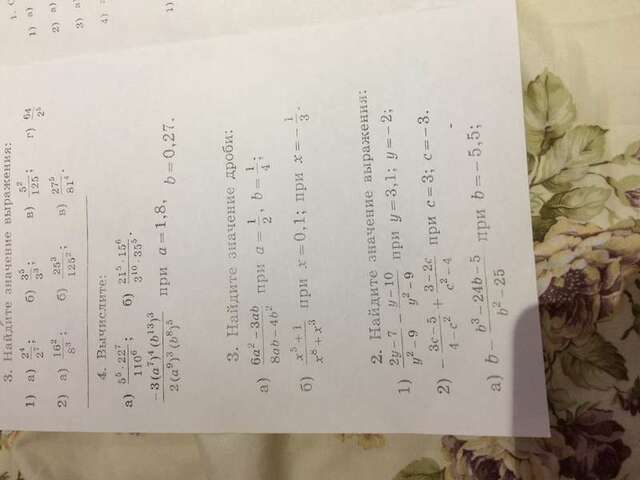 1. С
1) а)
2) а)
3) а)
4)
1)
3. Найдите значение выражения:
1) а) 2⁴/2⁷; б) 3⁵/3³; в) 5²/125; г) 64/2⁵
2) а) 16²/8³; б) 25³/125²; в) 27⁵/81⁴.
4. Вычислите:
а) 5⁵·22⁷/110⁶; б) 21⁵·15⁶/3¹⁰·35⁵.
−3(a⁷)⁴(b¹³)³/2(a⁹)³(b⁸)⁵ при a=1,8, b=0,27.
3. Найдите значение дроби:
а) 6a²−3ab/8ab−4b² при a=1/2, b=1/4;
б) x⁵+1/x⁸+x³ при x=0,1; при x=−1/3.
2. Найдите значение выражения:
1) 2y−7/y²−9 − y−10/y²−9 при y=3,1; y=−2;
2) −3c−5/4−c² + 3−2c/c²−4 при c=3; c=−3.
а) b− b³−24b−5/b²−25 при b=−5,5;